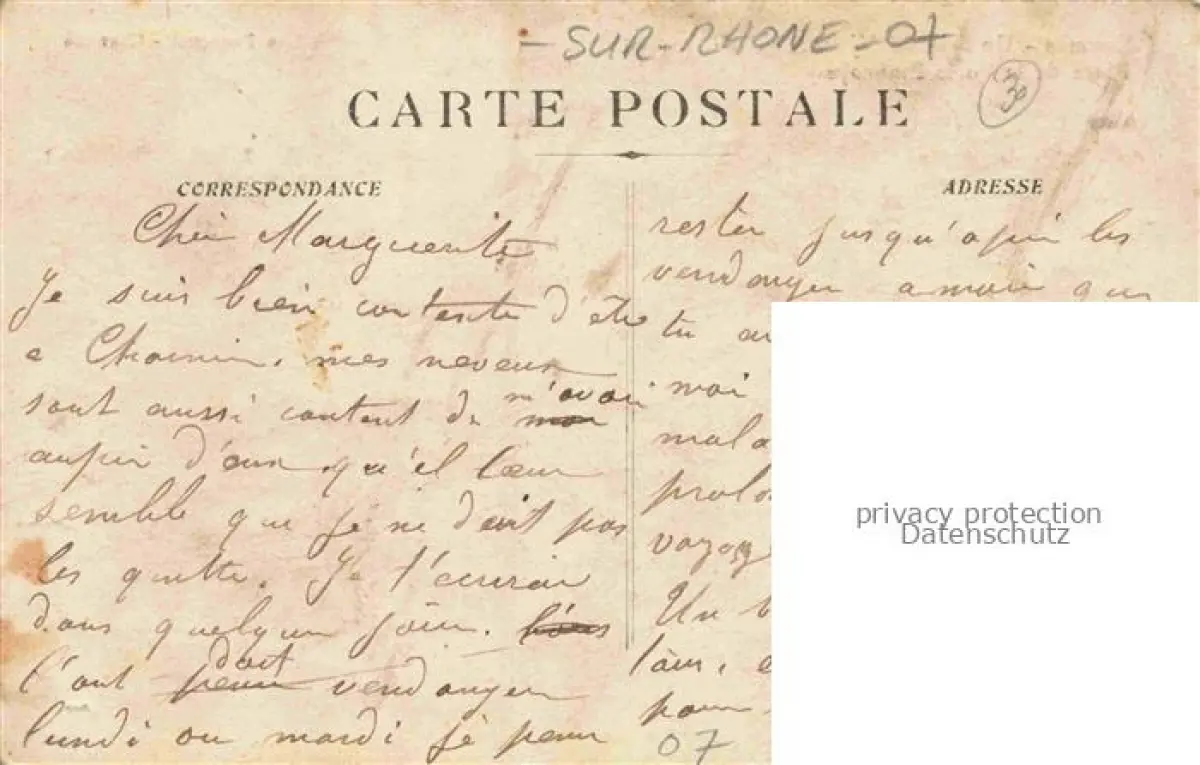 - SUR-RHONE - 07
30
CARTE POSTALE
CORRESPONDANCE
ADRESSE
Chèr Marguerite
Je suis bien contente d'être
a Charmin, mes neveux
sont aussi content de m'avoir
aupir d'eux, qu'el leur
semble que je ne doit pas
les quitter. Je t'ecrirai
dans quelqun jour.
l'ont doit vendanger
lundi ou mardi je peux
rester jusqu'apir les
vendanger amoin que
tu
moi
mala
prolo
voyag
Un b
pour
07
privacy protection
Datenschutz